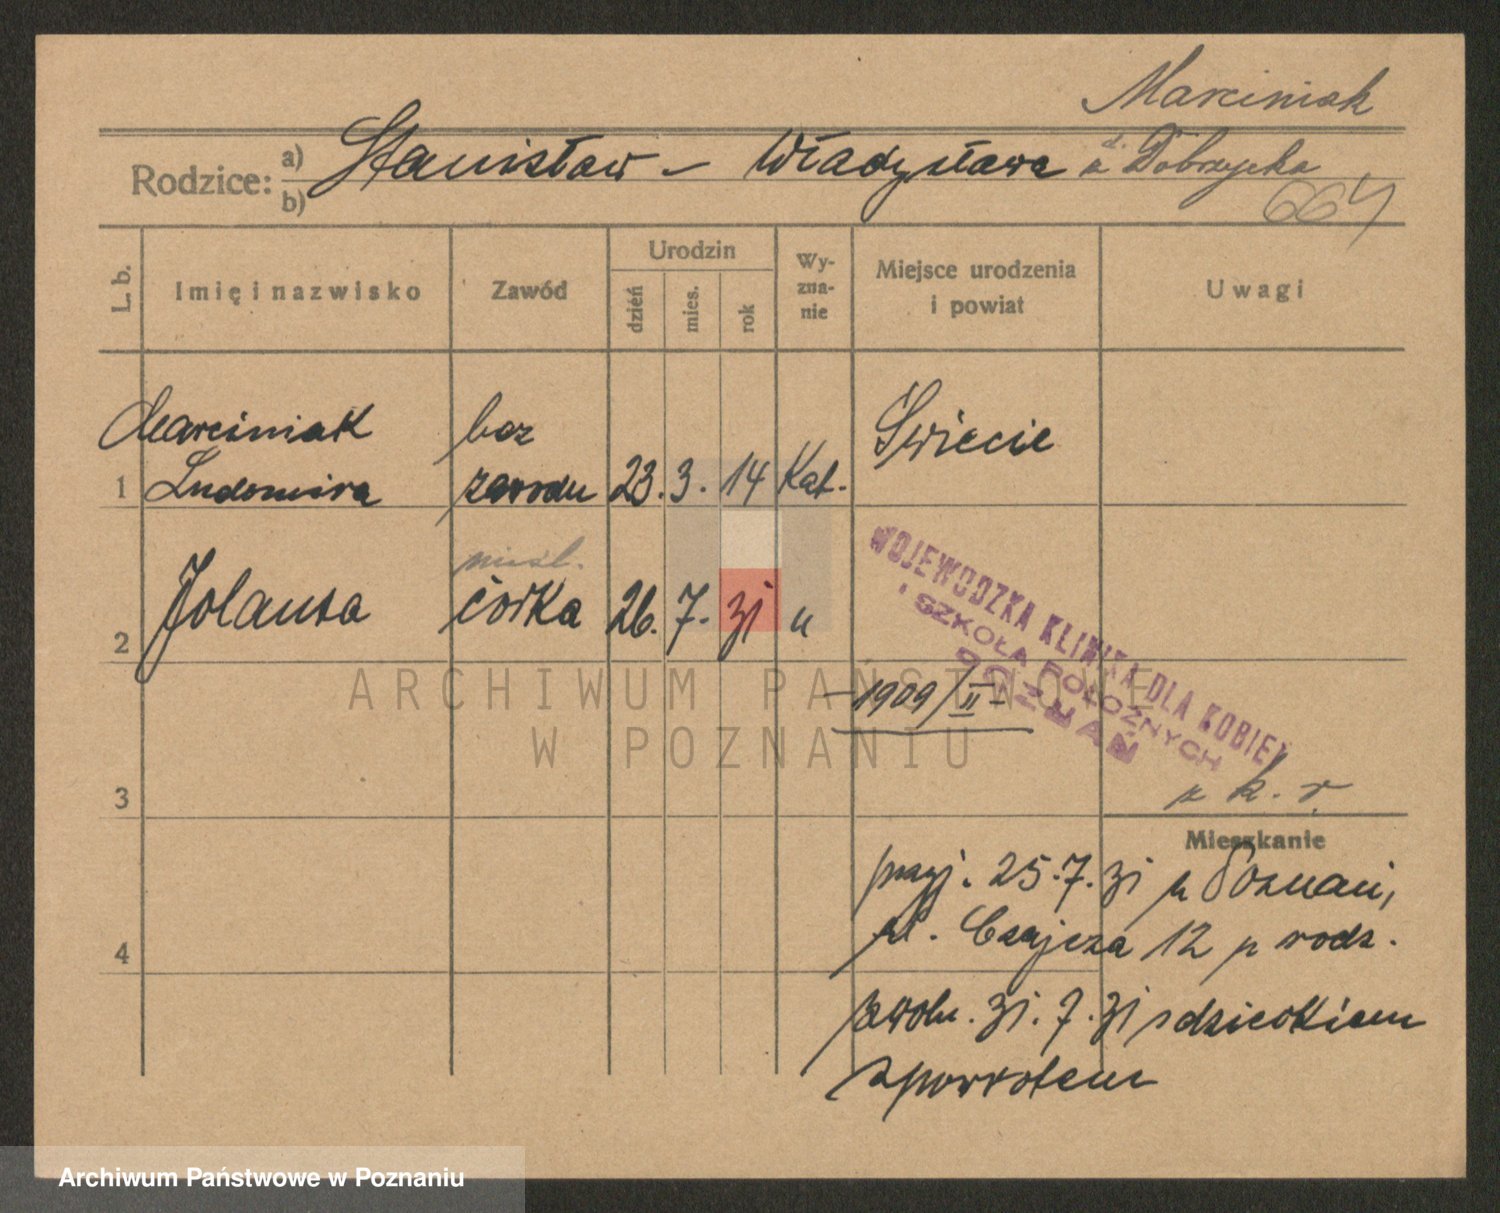 Marciniak
Rodzice: a) b) Stanisław – Władysława d. Dobrzycka
664
L. b. Imię i nazwisko Zawód Urodzin dzień mies. rok Wy-zna-nie Miejsce urodzenia i powiat Uwagi
Marciniak bez Świecie
1 Ludomira zawodu 23. 3. 14 Kat.
nieśl.
2 Jolanta córka 26. 7. 31 "
WOJEWÓDZKA KLINIKA DLA KOBIET
i SZKOŁA POŁOŻNYCH
POZNAŃ
– 1909/II –
z k. r.
3
Mieszkanie
przyj. 25.7.31 w Poznani,
ul. 12 p rodz.
4
zwoln. 31.7.31 z dzieckiem
z powrotem
ARCHIWUM PAŃSTWOWE
W POZNANIU
Archiwum Państwowe w Poznaniu